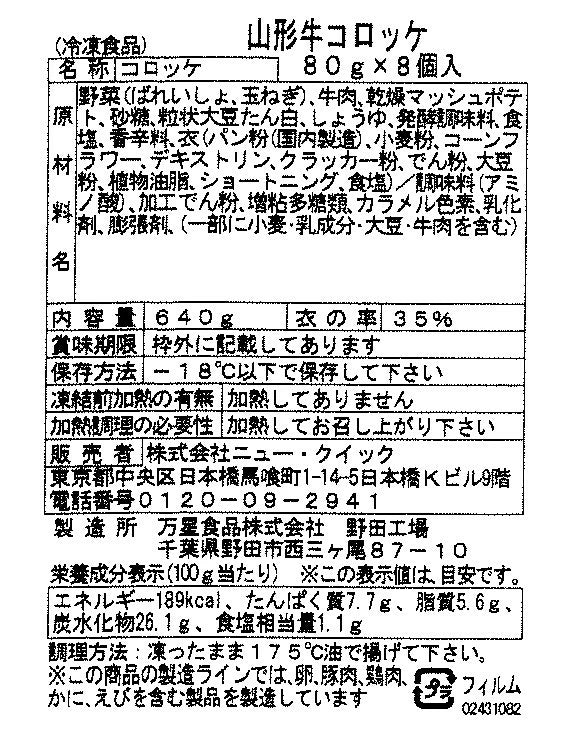 山形牛コロッケ
(冷凍食品)
80g×8個入
名称 コロッケ
原材料名
野菜(ばれいしょ、玉ねぎ)、牛肉、乾燥マッシュポテ
ト、砂糖、粒状大豆たん白、しょうゆ、発酵調味料、食
塩、香辛料、衣(パン粉(国内製造)、小麦粉、コーンフ
ラワー、デキストリン、クラッカー粉、でん粉、大豆
粉、植物油脂、ショートニング、食塩)/調味料(アミ
ノ酸)、加工でん粉、増粘多糖類、カラメル色素、乳化
剤、膨張剤、(一部に小麦・乳成分・大豆・牛肉を含む)
内容量 640g 衣の率 35%
賞味期限 枠外に記載してあります
保存方法 -18℃以下で保存して下さい
凍結前加熱の有無 加熱してありません
加熱調理の必要性 加熱してお召し上がり下さい
販売者 株式会社ニュー・クイック
東京都中央区日本橋馬喰町1-14-5日本橋Kビル9階
電話番号0120-09-2941
製造所 万星食品株式会社 野田工場
千葉県野田市西三ヶ尾87-10
栄養成分表示(100g当たり) ※この表示値は、目安です。
エネルギー189kcal、たんぱく質7.7g、脂質5.6g、
炭水化物26.1g、食塩相当量1.1g
調理方法:凍ったまま175℃油で揚げて下さい。
※この商品の製造ラインでは、卵、豚肉、鶏肉、
かに、えびを含む製品を製造しています
プラ フィルム
02431082